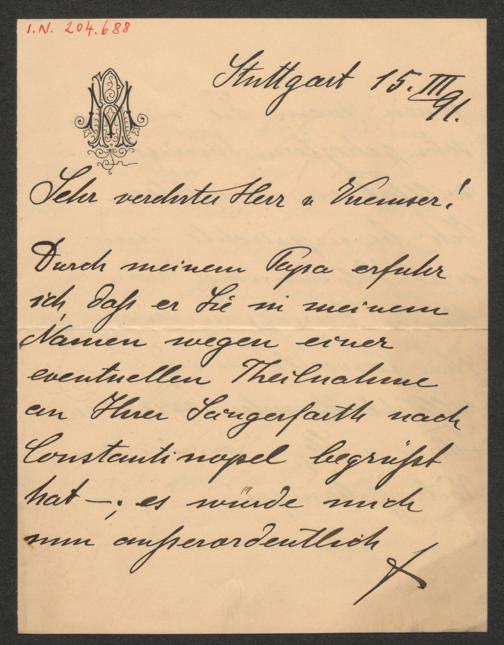 I.N. 204.688
Stuttgart 15. III
91.
Sehr verehrter Herr v Kremser!
Durch meinem Papa erfuhr
ich, daß er Sie in meinem
Namen wegen einer
eventuellen Theilnahme
an Ihrer Sängerfarth nach
Constantinopel begrüßt
hat —; es würde mich
nun außerordentlich